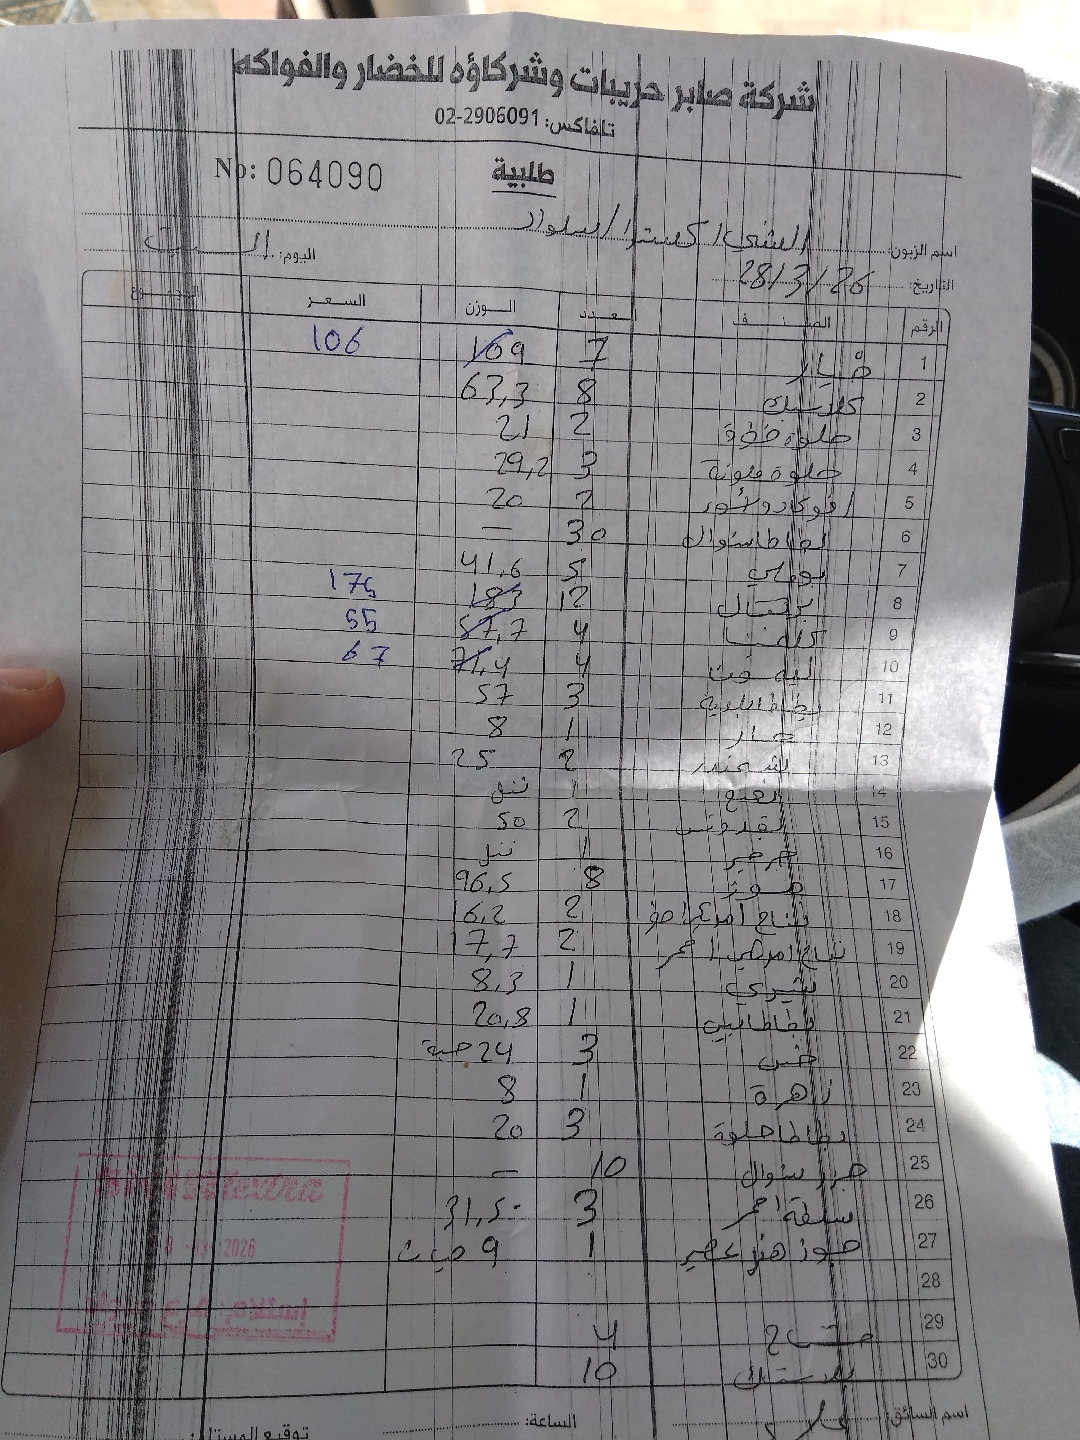 شركة صابر حريبات وشركاؤه للخضار والفواكه
تلفاكس: 02-2906091
طلبية
No: 064090
اسم الزبون: الشني اكسترا / سلواد
التاريخ: 28/3/26 اليوم: السبت
الرقم الصنف العدد الوزن السعر المجموع
1 خيار 7 169 106
2 كلاسيك 8 63,3
3 حلوة 2 21
4 حلوة ملونة 3 29,2
5 افوكادو 2 20
6 بطاطا شوال 30 —
7 بوملي 5 41,6
8 برتقال 12 183 175
9 4 57,7 55
10 4 71,4 67
11 بطاطا 3 57
12 1 8
13 شمندر 2 25
14 نعنع 1
15 بقدونس 2 50
16 جرجير 1
17 موز 8 96,5
18 تفاح 2 16,2
19 تفاح احمر 2 17,7
20 شيري 1 8,3
21 بطاطا 1 20,8
22 خس 3 24 حبة
23 زهرة 1 8
24 بطاطا حلوة 3 20
25 جزر شوال 10 —
26 احمر 3 31,5
27 جوز هند 1 9 حبات
28
29 4
30 بلاستك 10
extra
2026
اسم السائق: الساعة: توقيع المستلم: